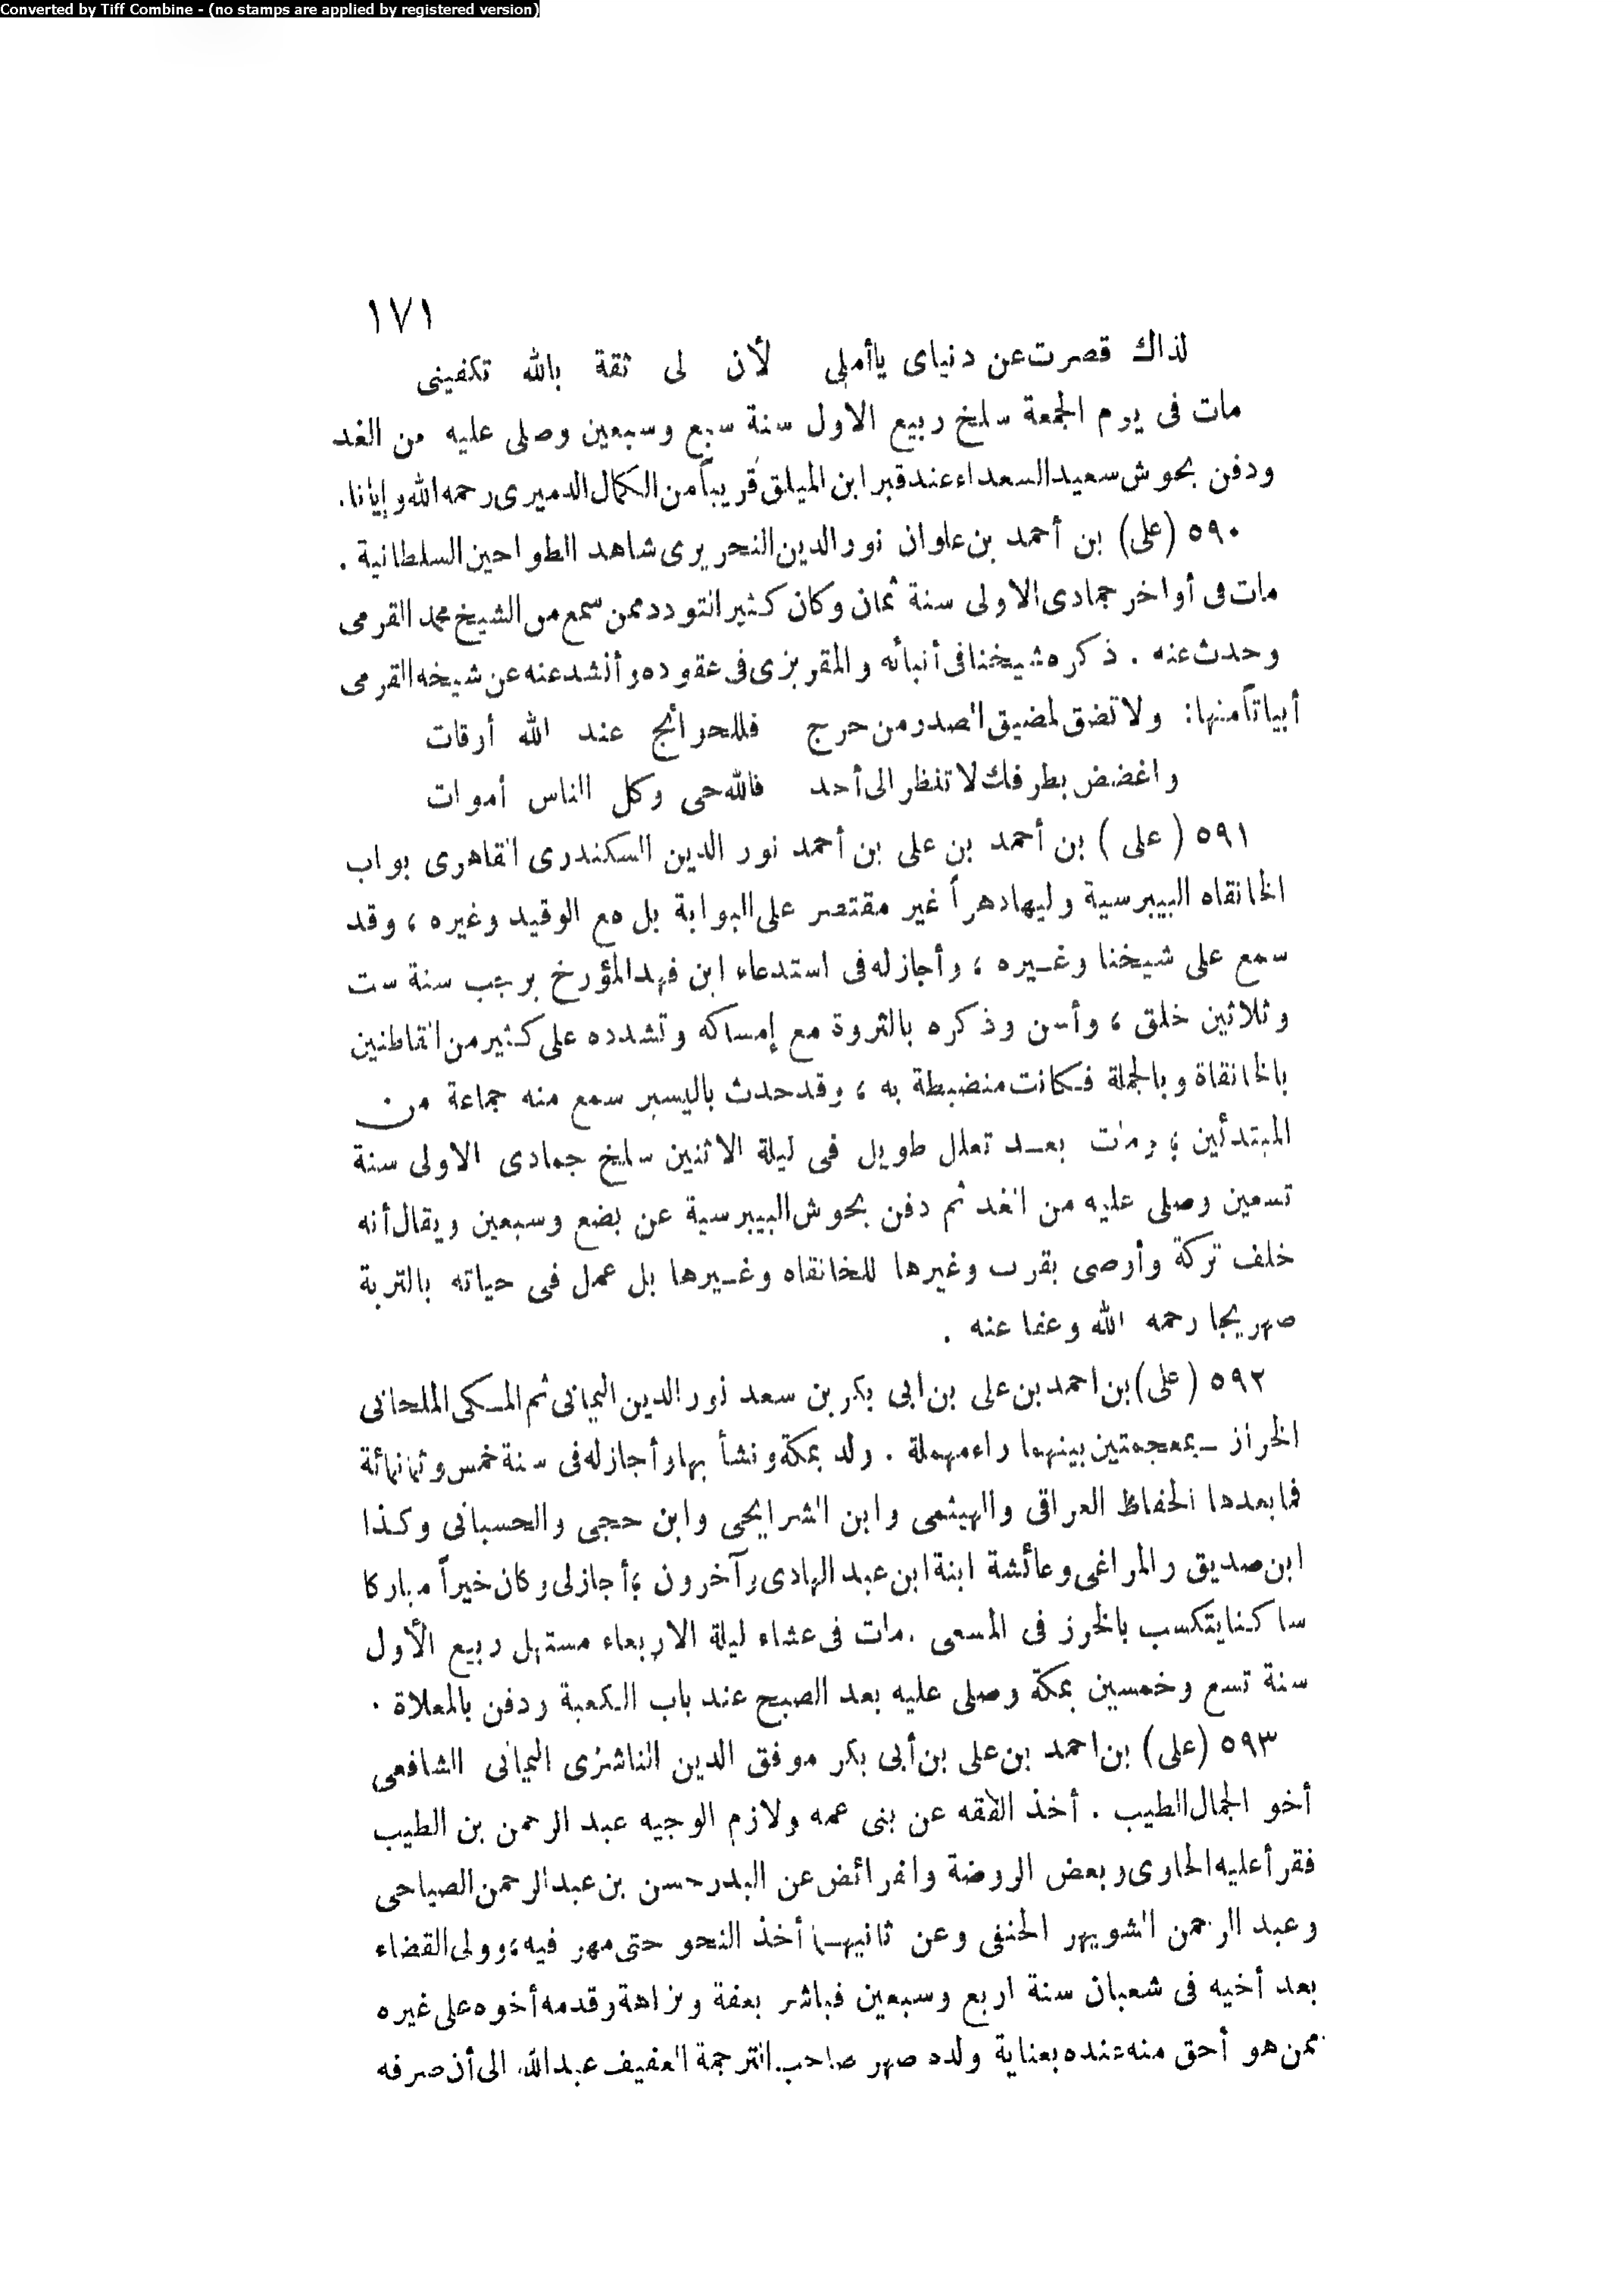 Converted by Tiff Combine - (no stamps are applied by registered version)
١٧١
لذاك قصرت عن دنياى ياأملى لأن لى ثقة بالله تكفينى
مات فى يوم الجمعة سلخ ربيع الاول سنة سبع وسبعين وصلى عليه من الغد
ودفن بحوش سعيد السعداء عند قبر ابن الميلق قريباً من الكمال الدميرى رحمه الله وإيانا.
٥٩٠ (على) بن أحمد بن علوان نور الدين النحريرى شاهد الطواحين السلطانية .
مات فى أواخر جمادى الاولى سنة ثمان وكان كثير التودد ممن سمع من الشيخ محمد القرمى
وحدث عنه . ذكره شيخنا فى أنبائه والمقريزى فى عقوده وأنشد عنه عن شيخه القرمى
أبياتاً منها: ولا تضق لمضيق الصدر من حرج فللحوائج عند الله أوقات
واغضض بطرفك لا تنظر الى أحد فالله حى وكل الناس أموات
٥٩١ ( على ) بن أحمد بن على بن أحمد نور الدين السكندرى القاهرى بواب
الخانقاه البيبرسية وليهادهراً غير مقتصر على البوابة بل مع الوقيد وغيره ، وقد
سمع على شيخنا وغيره ، وأجاز له فى استدعاء ابن فهد المؤرخ برجب سنة ست
وثلاثين خلق ، وأسن وذكره بالثروة مع إمساكه وتشدده على كثير من القاطنين
بالخانقاة وبالجملة فكانت منضبطة به ، وقد حدث باليسير سمع منه جماعة من
المبتدئين ، ومات بعد تعلل طويل فى ليلة الاثنين سلخ جمادى الاولى سنة
تسعين وصلى عليه من الغد ثم دفن بحوش البيبرسية عن بضع وسبعين ويقال أنه
خلف تركة وأوصى بقرب وغيرها للخانقاه وغيرها بل عمل فى حياته بالتربة
صهريجا رحمه الله وعفا عنه .
٥٩٢ (على) بن احمد بن على بن ابى بكر بن سعد نور الدين اليمانى ثم المكى الملحانى
الخراز ـ بمعجمتين بينهما راء مهملة . ولد بمكة ونشأ بها وأجاز له فى سنة خمس وثمانمائة
فما بعدها الحفاظ العراقى والهيثمى وابن الشرايحى وابن حجى والحسبانى وكذا
ابن صديق والمراغى وعائشة ابنة ابن عبد الهادى وآخرون ، أجاز لى وكان خيراً مباركا
ساكنا يتكسب بالخرز فى المسعى . مات فى عشاء ليلة الاربعاء مستهل ربيع الأول
سنة تسع وخمسين بمكة وصلى عليه بعد الصبح عند باب الكعبة ودفن بالمعلاة .
٥٩٣ (على) بن احمد بن على بن أبى بكر موفق الدين الناشرى اليمانى الشافعى
أخو الجمال الطيب . أخذ الفقه عن بنى عمه ولازم الوجيه عبد الرحمن بن الطيب
فقرأ عليه الحاوى وبعض الروضة والفرائض عن البدر حسن بن عبد الرحمن الصياحى
وعبد الرحمن الشويهر الحنفى وعن ثانيهما أخذ النحو حتى مهر فيه ، وولى القضاء
بعد أخيه فى شعبان سنة اربع وسبعين فباشر بعفة ونزاهة وقدمه أخوه على غيره
ممن هو أحق منه عنده بعناية ولده صهر صاحب الترجمة العفيف عبد الله الى أن صرفه